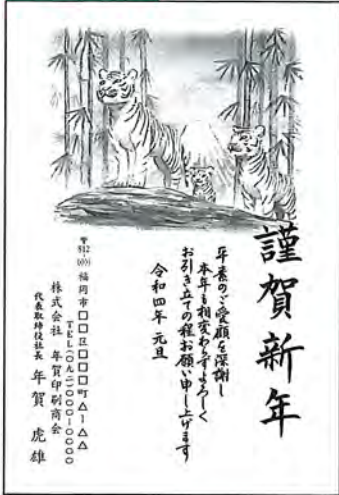 謹賀新年
平素のご愛顧を深謝し
本年も相変わらずよろしく
お引き立ての程お願い申し上げます
令和四年 元旦
福岡市□□区□□□町△ー△△
TEL(〇九二)〇〇〇ー〇〇〇〇
株式会社 年賀印刷商会
代表取締役社長 年賀 虎雄